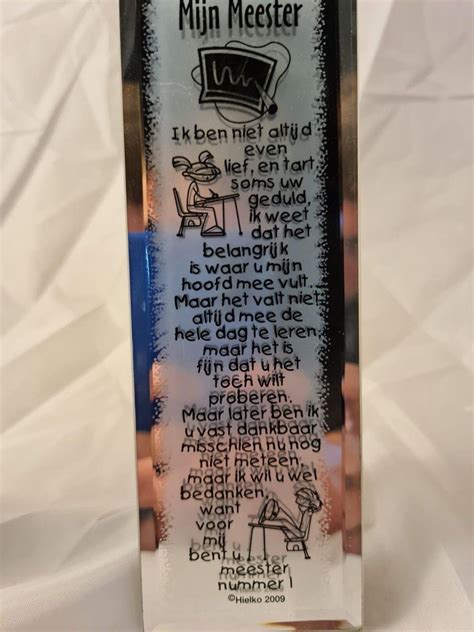 Mijn Meester
Ik ben niet altijd
even
lief, en tart
soms uw
geduld,
ik weet
dat het
belangrijk
is waar u mijn
hoofd mee vult.
Maar het valt niet
altijd mee de
hele dag te leren.
maar het is
fijn dat u het
toch wilt
proberen.
Maar later ben ik
u vast dankbaar
misschien nu nog
niet meteen,
maar ik wil u wel
bedanken,
want
voor
mij
bent u
meester
nummer 1
©Hielko 2009